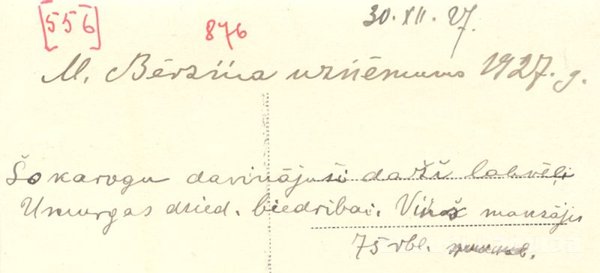 [556]
876
30.XII.27.
M. Bērziņa uzņēmums 1927. g.
Šo karogu davinājuši daži labvēļi
Umurgas dzied. biedrībai. Viņš maksājis
75 rbl.